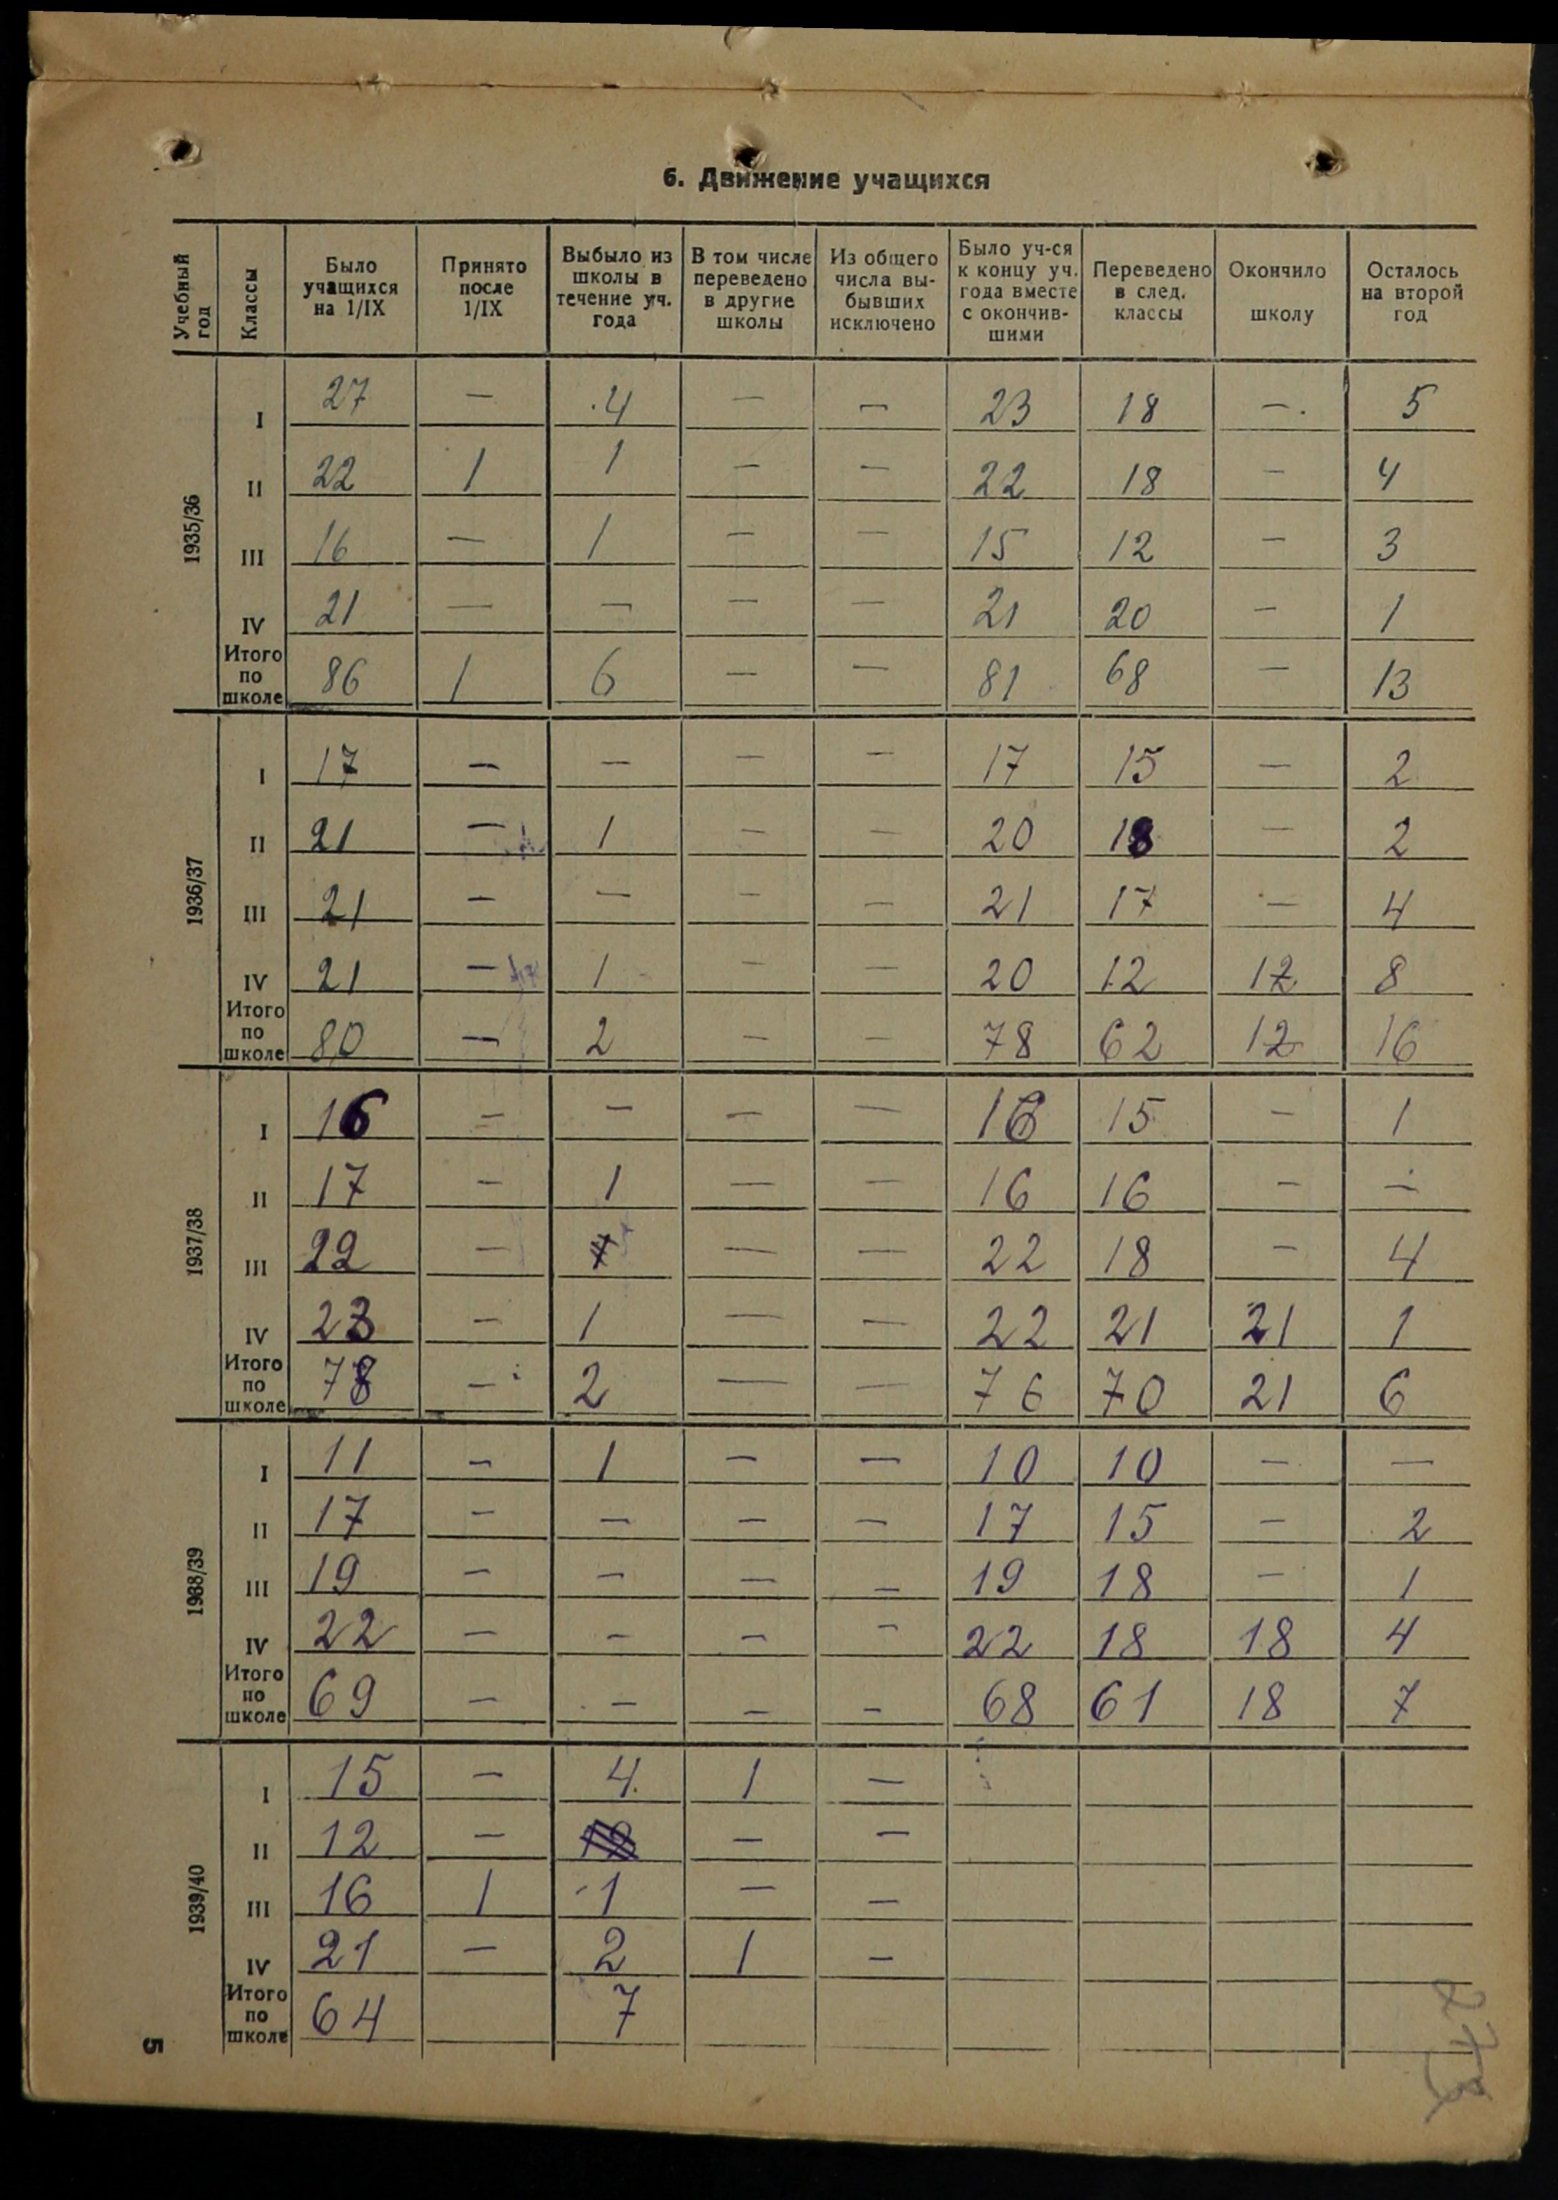 6. Движение учащихся
Учебный год | Классы | Было учащихся на 1/IX | Принято после 1/IX | Выбыло из школы в течение уч. года | В том числе переведено в другие школы | Из общего числа выбывших исключено | Было уч-ся к концу уч. года вместе с окончившими | Переведено в след. классы | Окончило школу | Осталось на второй год
1935/36
I | 27 | — | 4 | — | — | 23 | 18 | — | 5
II | 22 | 1 | 1 | — | — | 22 | 18 | — | 4
III | 16 | — | 1 | — | — | 15 | 12 | — | 3
IV | 21 | — | — | — | — | 21 | 20 | — | 1
Итого по школе | 86 | 1 | 6 | — | — | 81 | 68 | — | 13
1936/37
I | 17 | — | — | — | — | 17 | 15 | — | 2
II | 21 | — | 1 | — | — | 20 | 18 | — | 2
III | 21 | — | — | — | — | 21 | 17 | — | 4
IV | 21 | — | 1 | — | — | 20 | 12 | 12 | 8
Итого по школе | 80 | — | 2 | — | — | 78 | 62 | 12 | 16
1937/38
I | 16 | — | — | — | — | 16 | 15 | — | 1
II | 17 | — | 1 | — | — | 16 | 16 | — | —
III | 22 | — | | — | — | 22 | 18 | — | 4
IV | 23 | — | 1 | — | — | 22 | 21 | 21 | 1
Итого по школе | 78 | — | 2 | — | — | 76 | 70 | 21 | 6
1938/39
I | 11 | — | 1 | — | — | 10 | 10 | — | —
II | 17 | — | — | — | — | 17 | 15 | — | 2
III | 19 | — | — | — | — | 19 | 18 | — | 1
IV | 22 | — | — | — | — | 22 | 18 | 18 | 4
Итого по школе | 69 | — | — | — | — | 68 | 61 | 18 | 7
1939/40
I | 15 | — | 4 | 1 | —
II | 12 | — | | — | —
III | 16 | 1 | 1 | — | —
IV | 21 | — | 2 | 1 | —
Итого по школе | 64 | | 7
5